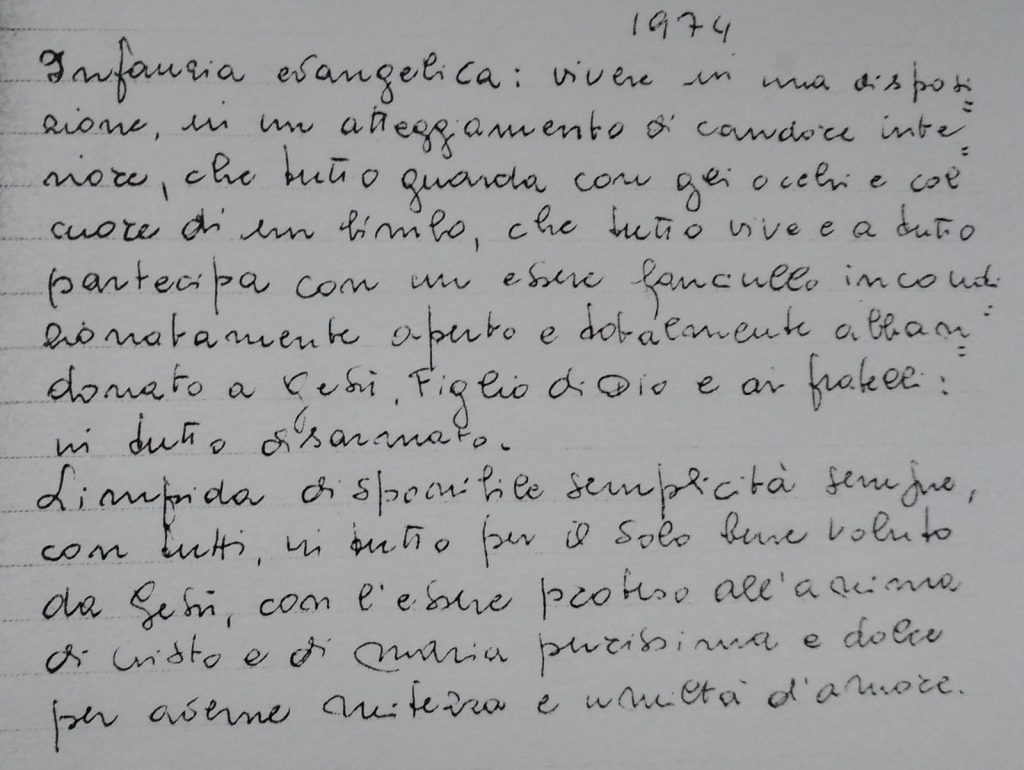 1974
Infanzia evangelica: vivere in una disposi=
zione, in un atteggiamento di candore inte=
riore, che tutto guarda con gli occhi e col
cuore di un bimbo, che tutto vive e a tutto
partecipa con un essere fanciullo incondi=
zionatamente aperto e totalmente abban=
donato a Gesù, Figlio di Dio e ai fratelli:
in tutto disarmato.
Limpida disponibile semplicità sempre,
con tutti, in tutto per il solo bene voluto
da Gesù, con l'essere proteso all'anima
di Cristo e di Maria purissima e dolce
per averne mitezza e umiltà d'amore.